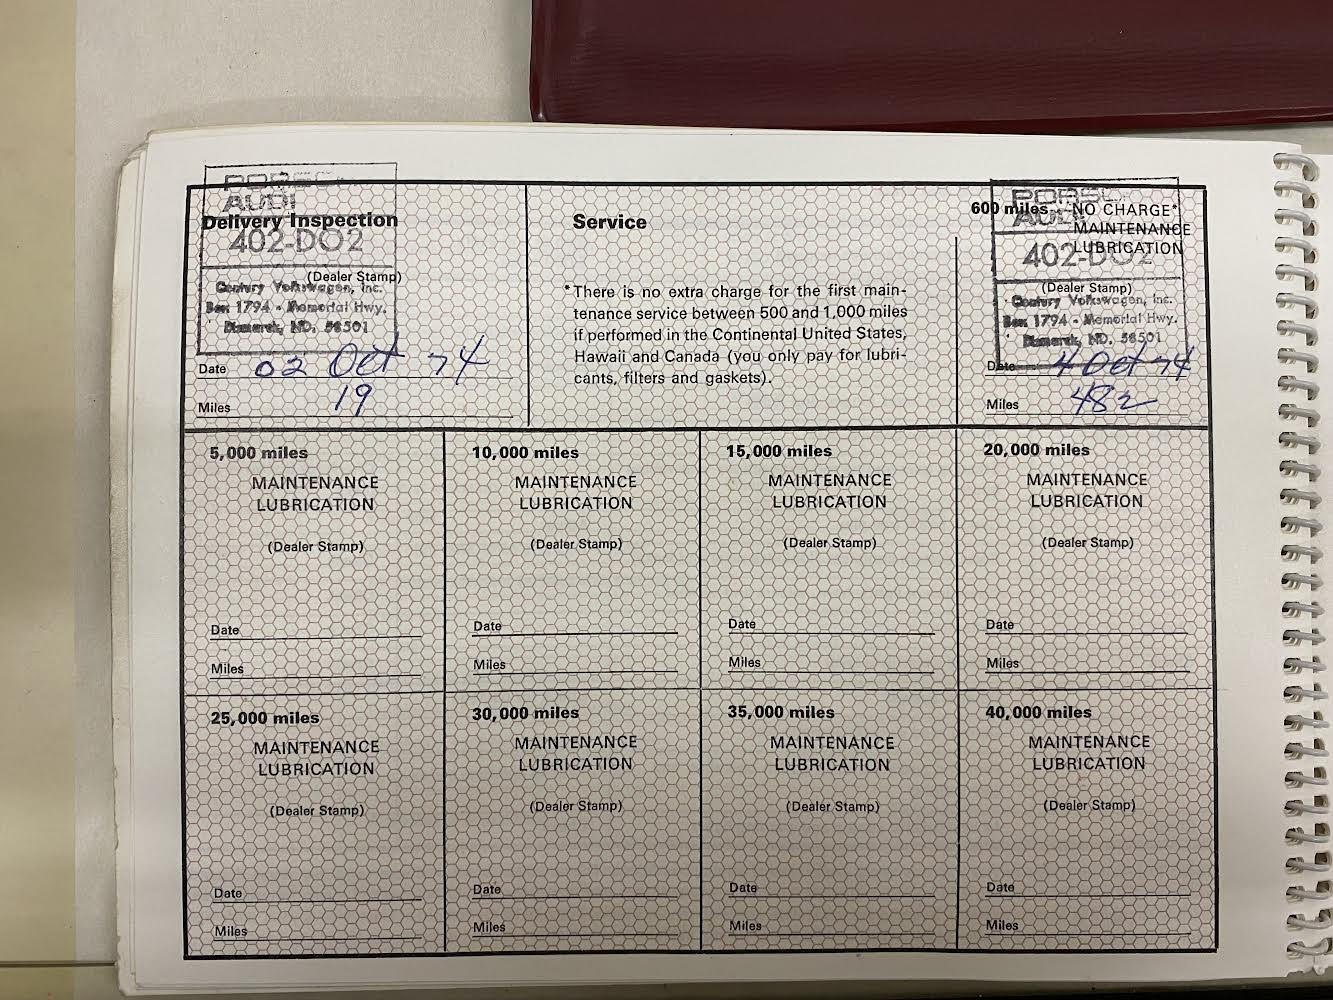 PORSCHE
AUDI
Delivery Inspection
402-DO2
(Dealer Stamp)
Century Volkswagen, Inc.
Box 1794 - Memorial Hwy.
Bismarck, ND. 58501
Date 02 Oct 74
Miles 19
Service
*There is no extra charge for the first main-
tenance service between 500 and 1,000 miles
if performed in the Continental United States,
Hawaii and Canada (you only pay for lubri-
cants, filters and gaskets).
PORSCHE
AUDI
600 miles NO CHARGE*
MAINTENANCE
LUBRICATION
402-DO2
(Dealer Stamp)
Century Volkswagen, Inc.
Box 1794 - Memorial Hwy.
Bismarck, ND. 58501
Date 4 Oct 74
Miles 482
5,000 miles
MAINTENANCE
LUBRICATION
(Dealer Stamp)
Date
Miles
10,000 miles
MAINTENANCE
LUBRICATION
(Dealer Stamp)
Date
Miles
15,000 miles
MAINTENANCE
LUBRICATION
(Dealer Stamp)
Date
Miles
20,000 miles
MAINTENANCE
LUBRICATION
(Dealer Stamp)
Date
Miles
25,000 miles
MAINTENANCE
LUBRICATION
(Dealer Stamp)
Date
Miles
30,000 miles
MAINTENANCE
LUBRICATION
(Dealer Stamp)
Date
Miles
35,000 miles
MAINTENANCE
LUBRICATION
(Dealer Stamp)
Date
Miles
40,000 miles
MAINTENANCE
LUBRICATION
(Dealer Stamp)
Date
Miles